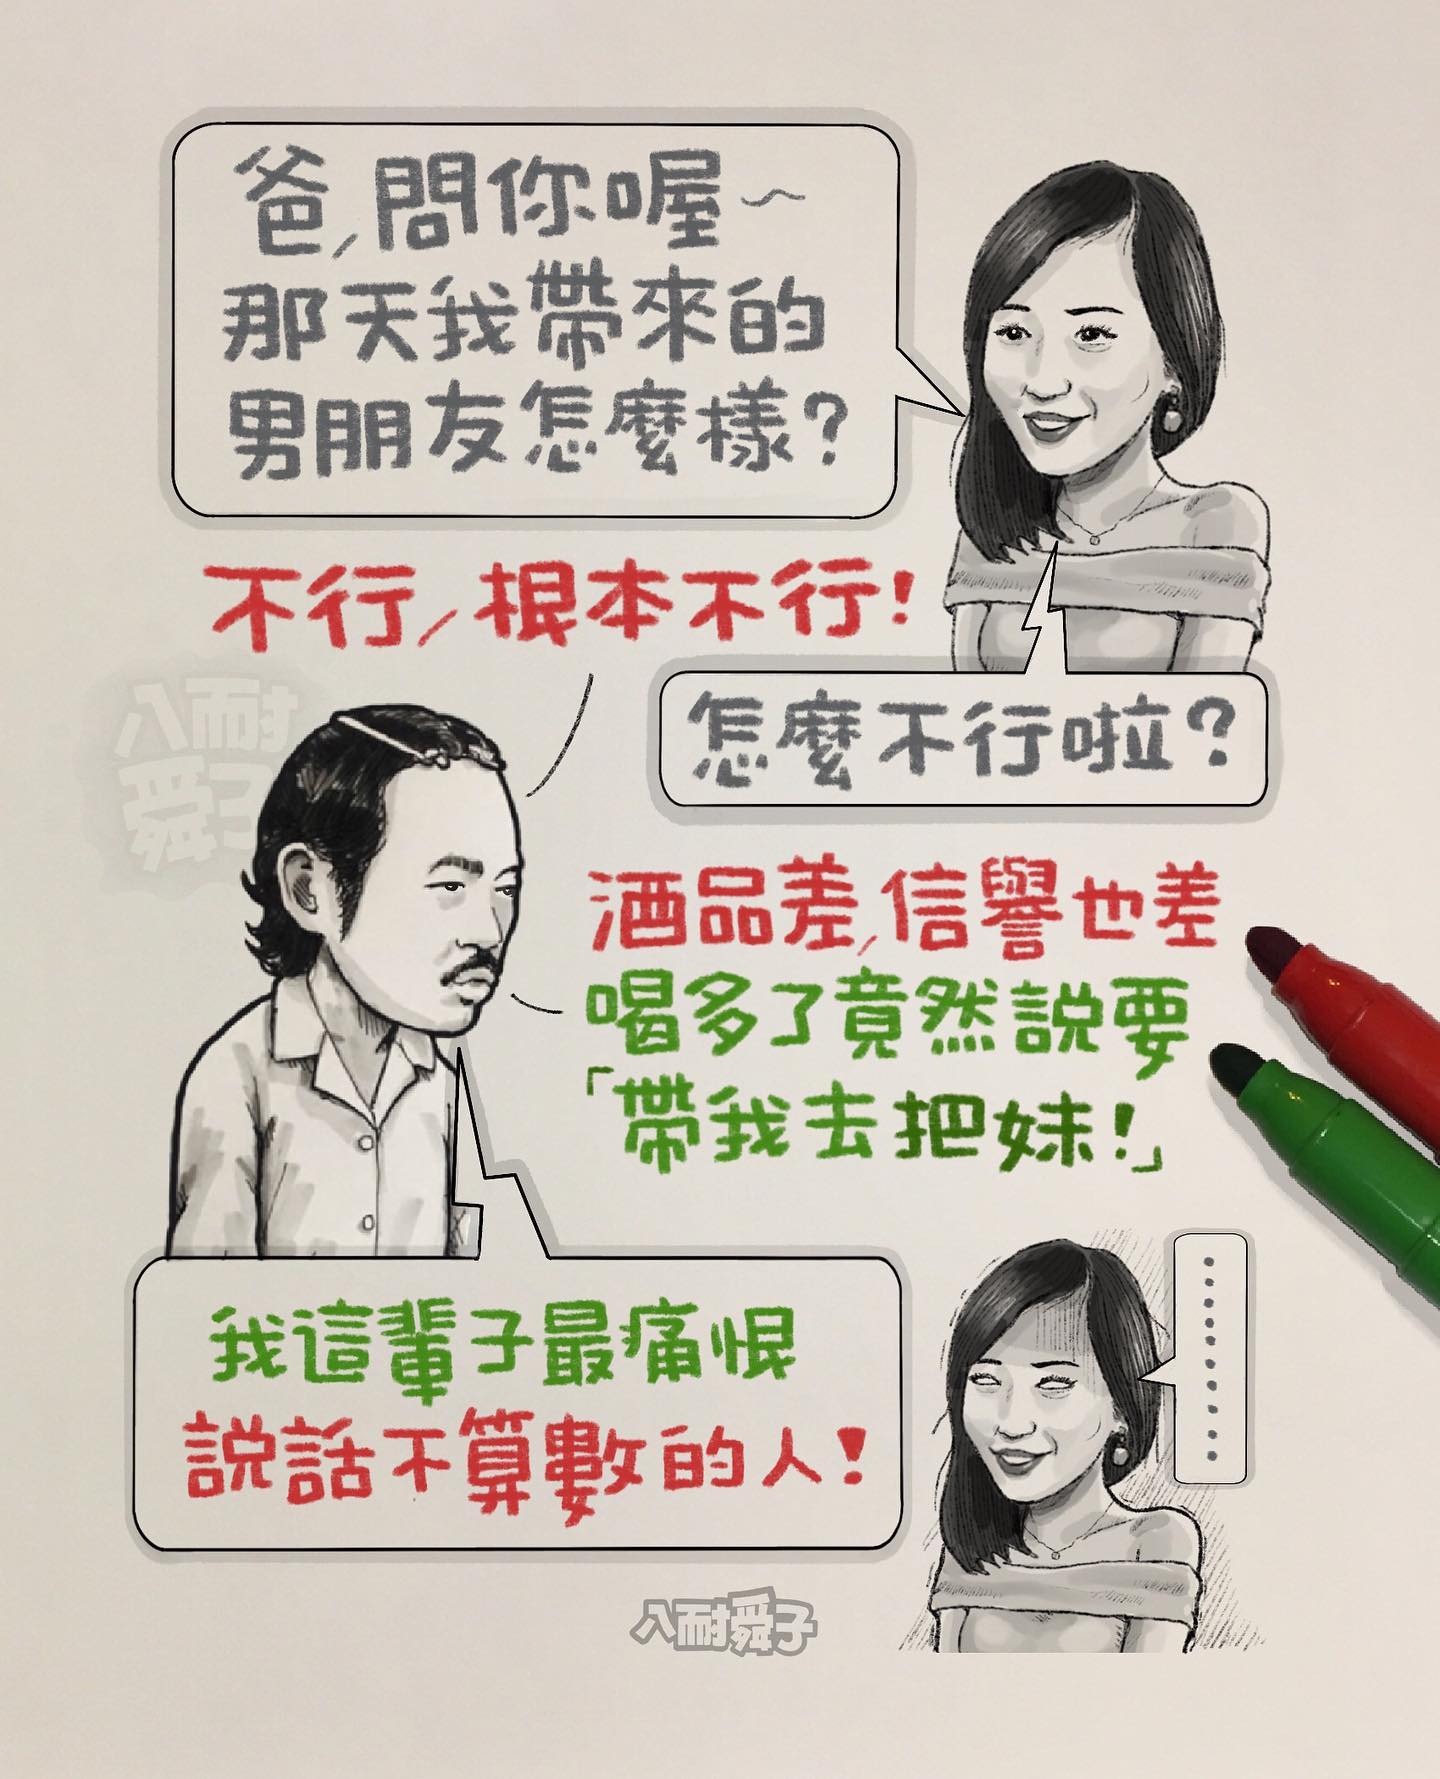 爸,問你喔~
那天我帶來的
男朋友怎麼樣?
不行,根本不行!
怎麼不行啦?
八耐
舜子
酒品差,信譽也差
喝多了竟然說要
「帶我去把妹!」
............
我這輩子最痛恨
說話不算數的人!
八耐舜子